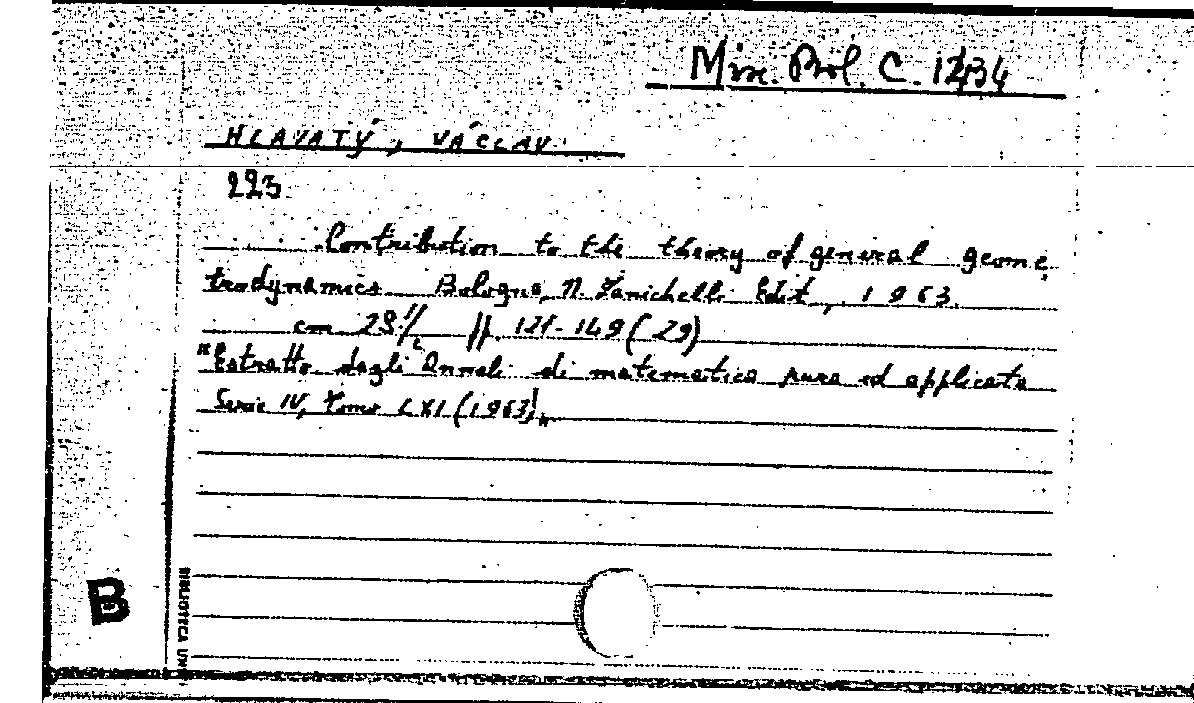 Misc. Bol. C. 12/34
HLAVATÝ, VÁCLAV.
223
Contribution to the theory of general geome
trodynamics. Bologna, N. Zanichelli Edit., 1963.
cm 28 1/2 pp. 121-149 (29)
"Estratto dagli Annali di matematica pura ed applicata
Serie IV, Tomo LXI (1963)"
B
BIBLIOTECA